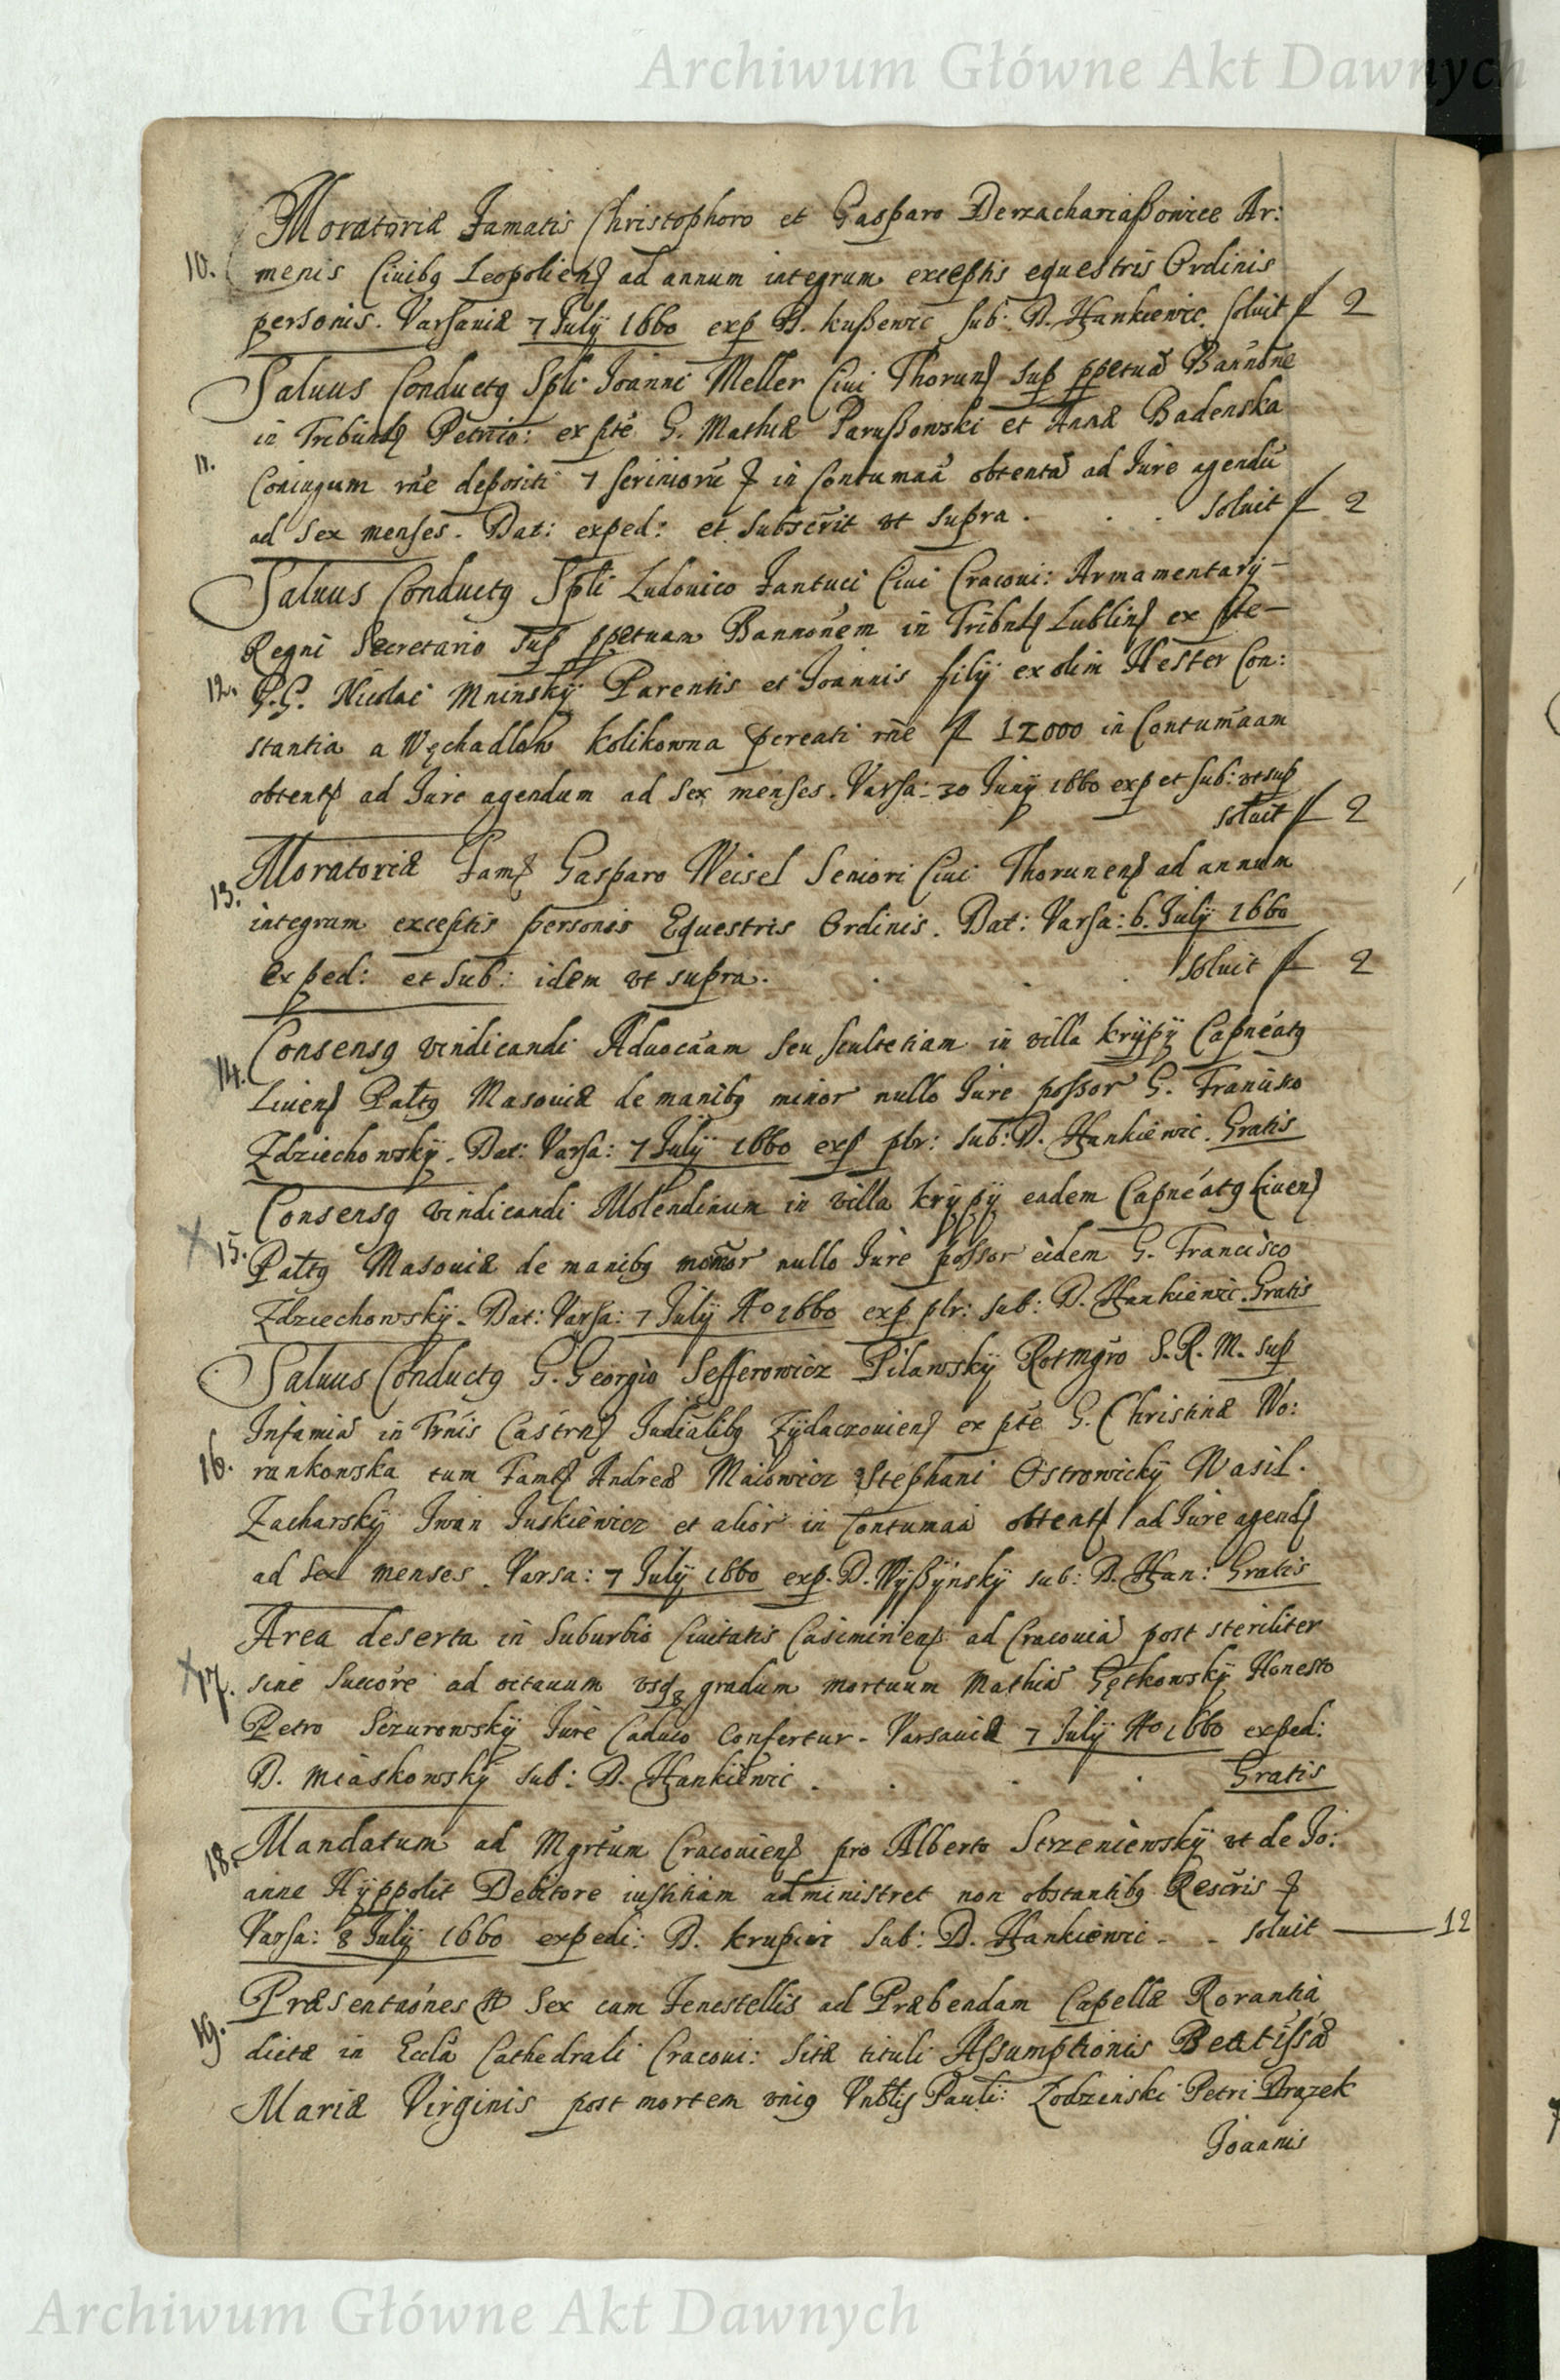 Archiwum Główne Akt Dawnych
Moratoriæ Famatis Christophoro et Gasparo Derzachariaßowicc Ar:
10. menis Ciuibq Leopolienß ad annum integrum exceptis equestris Ordinis
personis. Varsauiæ 7 July 1660 exp D. Kußewic sub: D. Hankiewic. soluit f 2
Saluus Conductq Spli Joanni Meller Ciui Thorunß sup ppetuā Bannōne
in Tribūnlß Petric̄o: ex pte G. Mathiæ Parußowski et Annæ Badenska
11. Coniugum rñe depositi 7 scriniorū in Contumaā obtentā ad Jure agendū
ad sex menses. Dat: exped: et subscrit vt supra. . . soluit f 2
Saluus Conductq Spli Ludouico Fantuci Ciui Cracoui: Armamentarÿ –
Regni Secretario sup ppetuam Bannonēm in Tribnlß Lublinß ex pte –
12. G.G. Nicolai Mninskÿ Parentis et Joannis filÿ ex olim Hester Con:
stantia a Węchadlow Kolikowna pcreati rñe f 12000 in Contumāam
obtentß ad Jure agendum ad sex menses. Varsa: 30 Junÿ 1660 exp et sub: vt sup
soluit f 2
Moratoriæ Famß Gasparo Weisel Seniori Ciui Thorunenß ad annum
13. integrum exceptis personis Equestris Ordinis. Dat: Varsa: 6. July 1660
exped: et sub: idem vt supra. . . . soluit f 2
14. Consensq vindicandi Aduocāam seu scultetiam in villa Krÿpÿ Capnéatq
Liuenß Paltq Masouiæ de manibq minor nullo Jure possor G. Francisco
Zdziechowskÿ. Dat: Varsa: 7 July 1660 exp plr: sub: D. Hankiewic. Gratis
Consensq vindicandi Molendinum in villa Krÿpÿ eadem Capnéatq Liuenß
15. Paltq Masouiæ de manibq minor nullo Jure possor eidem G. Francisco
Zdziechowskÿ. Dat: Varsa: 7 July Aº 1660 exp plr: sub: D. Hankiewic. Gratis
Saluus Conductq G. Georgio Sefferowicz Pilawskÿ Rotmgro S.R.M. sup
Infamiā in Trnis Castrnß Judicalibq Zÿdaczouienß ex pte G. Christinæ Wo:
16. rankowska tum Famß Andreæ Maiowicz Stephani Ostrowickÿ Wasil.
Zacharskÿ Jwan Juskiewicz et alior in Contumaā obtentß ad Jure agendß
ad sex menses. Varsa: 7 July 1660 exp. D. Wÿßÿnskÿ sub: D. Han: Gratis
Area deserta in Suburbio Ciuitatis Casimirienß ad Cracouiā post steriliter
17. sine succōre ad octauum vsq gradum mortuum Mathiā Gętkowskÿ Honesto
Petro Sczurowskÿ Jure Caduco Confertur. Varsauiæ 7 July Aº 1660 exped:
D. Miaskowskÿ sub: D. Hankiewic . . . . Gratis
18. Mandatum ad Mgrtum Cracouienß pro Alberto Strzeniewskÿ vt de Jo:
anne Hÿppolit Debitore iustitiam administret non obstantibq Rescris
Varsa: 8 July 1660 expedi: D. Krupini sub: D. Hankiewic . . soluit 12
Præsentaónes sex cum Fenestellis ad Præbendam Capellæ Rorantiā
19. dictæ in Eccla Cathedrali Cracoui: sitæ tituli Assumptionis Beatissæ
Mariæ Virginis post mortem vniq Vnblis Pauli: Zodzinski Petri Drązek
Joannis
Archiwum Główne Akt Dawnych